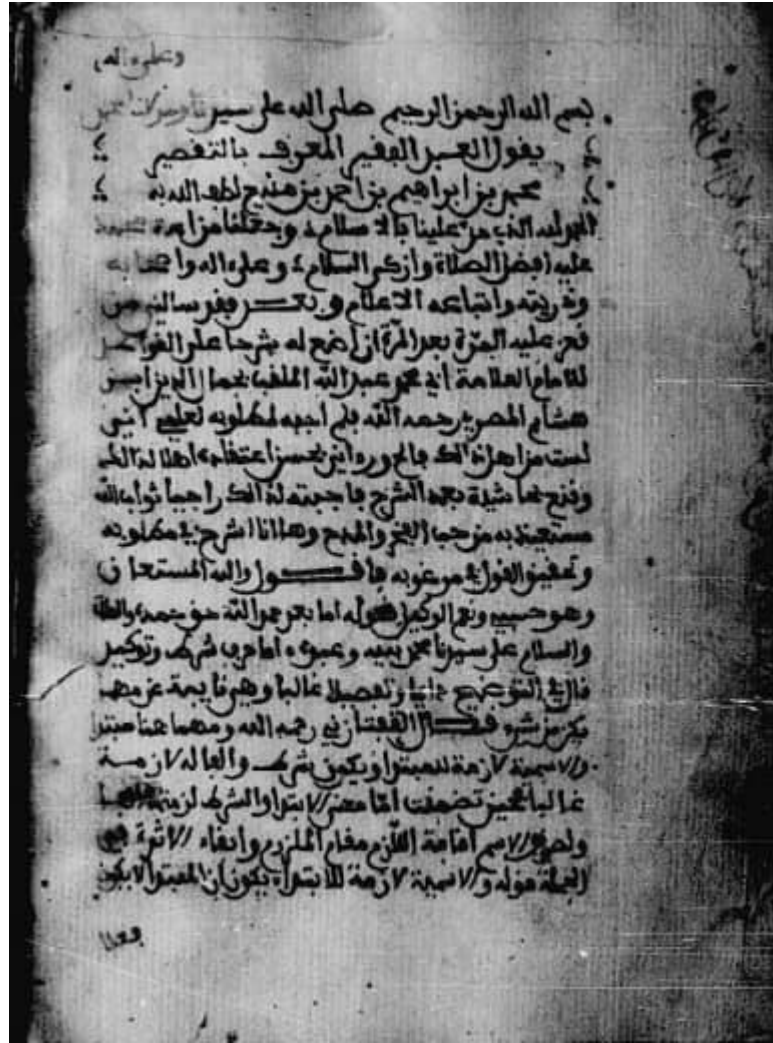 وعلى اله
بسم الله الرحمن الرحيم صلى الله على سيدنا ومولانا محمد
يقول العبد الفقير المعروف بالتقصير
محمد بن ابراهيم بن احمد بن لطف الله به
الحمد لله الذي من علينا بالاسلام وجعلنا من امة
عليه افضل الصلاة وازكى السلام وعلى اله واصحابه
وذريته واتباعه الاعلام وبعد فقد سالني من
تعز عليه المرة بعد المرة ان اضع له شرحا على القواعد
للامام العلامة أبي محمد عبد الله الملقب بجمال الدين ابن
هشام المصري رحمه الله فلم اجبه لمطلوبه لعلمي انني
لست من اهل ذالك
الشرح فاجبته لذالك راجيا ثواب الله
مستعيذا به من حب الفخر والمدح وها انا اشرع في مطلوبه
وتحقيق القول في مرغوبه فاقول والله المستعان
وهو حسبي ونعم الوكيل قوله اما بعد حمد الله حق حمده والصلاة
والسلام على سيدنا محمد نبيه وعبده اما حرف شرط وتوكيد
قال في التوضيح دايما وتفصيل غالبا وهي نايبة عن مهما
يكن من شيء قال التفتازاني رحمه الله ومهما هنا مبتدا
والاسمية لازمة للمبتدا ويكن شرط والفاء لازمة
غالبا فحين تضمنت اما معنى الابتدا والشرط لزمتها
ولصوق الاسم اقامة اللازم مقام الملزوم وابقاء لاثره في
الجملة قوله والاسمية لازمة للابتداء يكون ان المبتدا لا يكون
فعلا